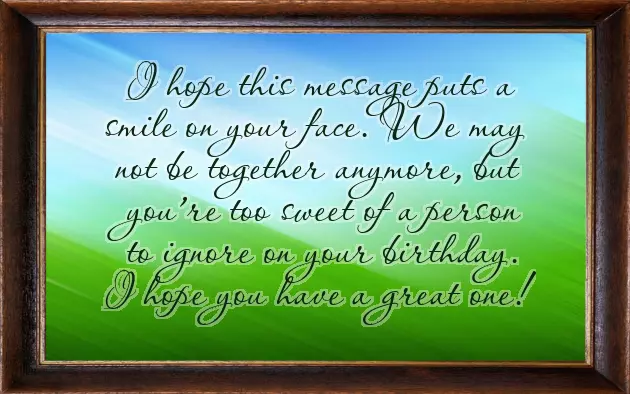 I hope this message puts a
smile on your face. We may
not be together anymore, but
you're too sweet of a person
to ignore on your birthday.
I hope you have a great one!